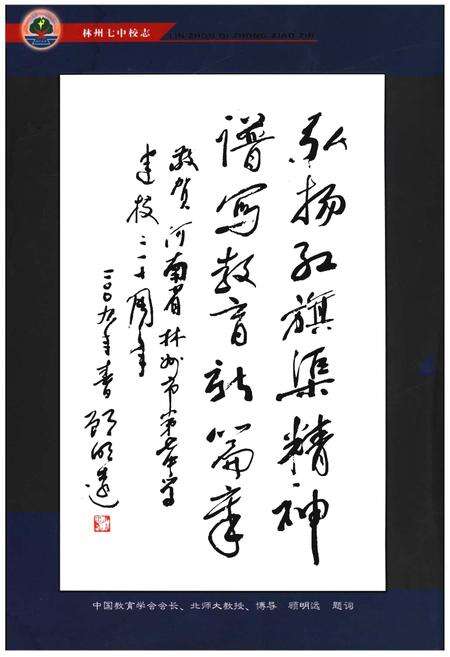 林州七中校志
LIN ZHOU QI ZHONG XIAO ZHI
弘扬红旗渠精神
谱写教育新篇章
敬贺河南省林州市第七中学
建校二十周年
二〇〇九年春 顾明远
中国教育学会会长、北师大教授、博导 顾明远 题词